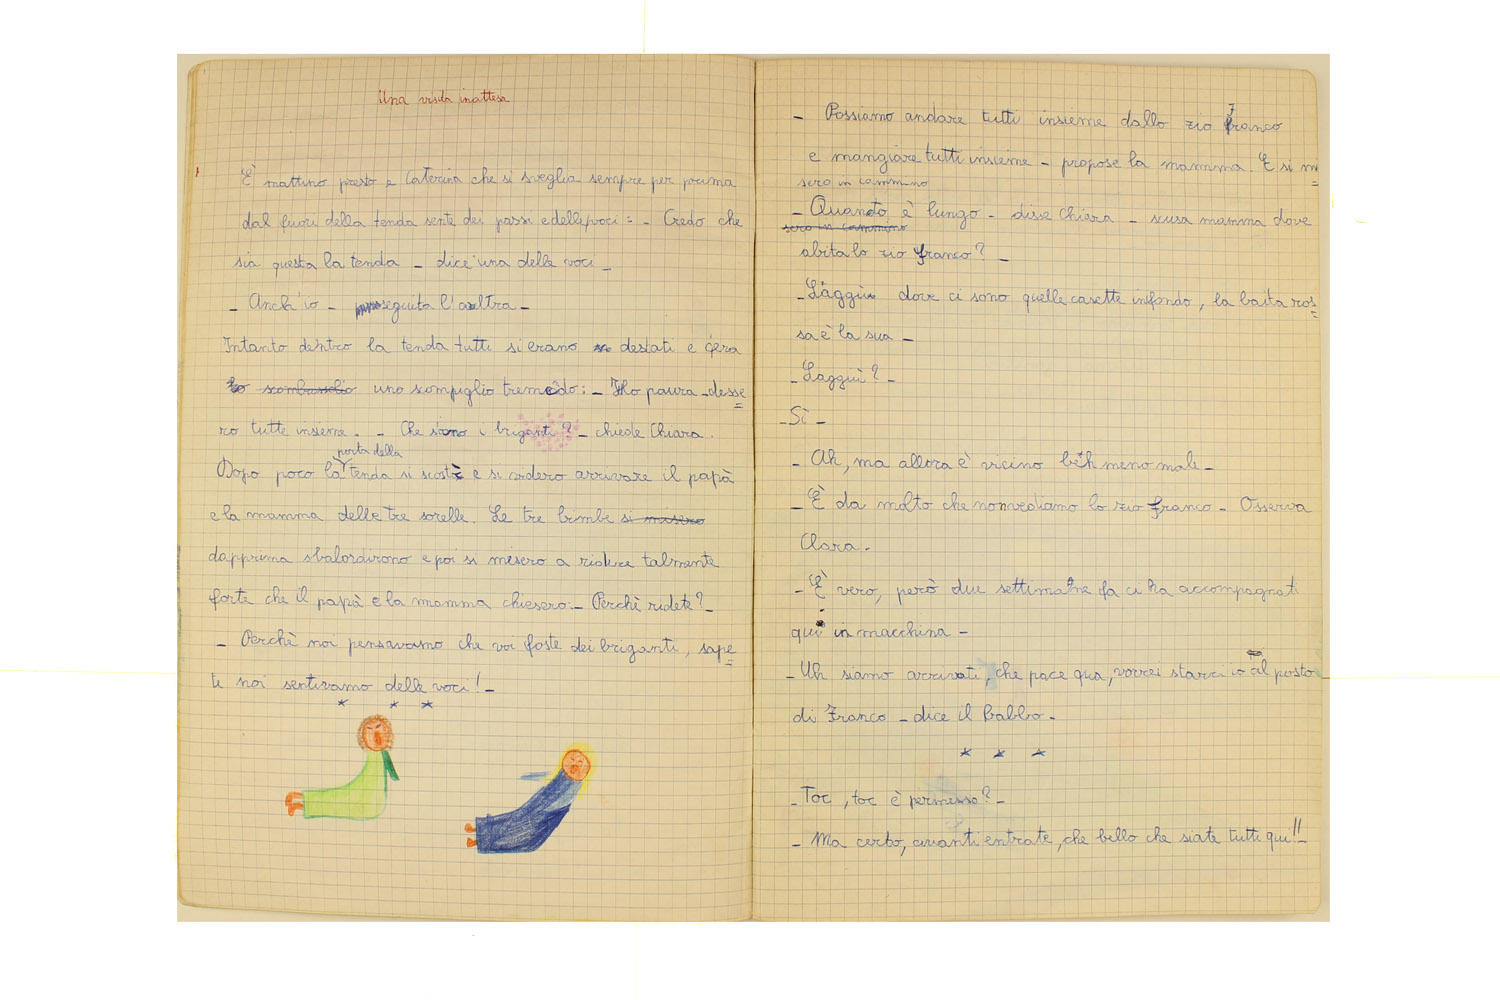 Una visita inattesa
È mattino presto e Caterina che si sveglia sempre per prima
dal fuori della tenda sente dei passi e delle voci: - Credo che
sia questa la tenda - dice una delle voci -
- Anch'io - seguita l'altra -
Intanto dentro la tenda tutti si erano destati e c'era
uno scompiglio tremedo: - Ho paura - desse
ro tutte insieme. - Che siano i briganti? - chiede Chiara.
Dopo poco la porta della tenda si scostò e si videro arrivare il papà
e la mamma delle tre sorelle. Le tre bimbe si misero
dapprima sbalordirono e poi si misero a ridere talmente
forte che il papà e la mamma chiesero: - Perchè ridete? -
- Perchè noi pensavamo che voi foste dei briganti, sape
te noi sentivamo delle voci! -
* * *
- Possiamo andare tutti insieme dallo zio Franco
e mangiare tutti insieme - propose la mamma. E si mi
sero in cammino
- Quanto è lungo - disse Chiara - scusa mamma dove
sero in cammino
abita lo zio Franco? -
- Laggiù dove ci sono quelle casette infondo, la baita ros
sa è la sua -
- Laggiù? -
- Sì -
- Ah, ma allora è vicino beh meno male -
- È da molto che non vediamo lo zio Franco - Osserva
Clara.
- È vero, però due settimane fa ci ha accompagnati
qui in macchina -
- Uh siamo arrivati, che pace qua, vorrei starci io al posto
di Franco - dice il Babbo -
* * *
- Toc, toc è permesso? -
- Ma certo, avanti entrate, che bello che siate tutti qui!! -